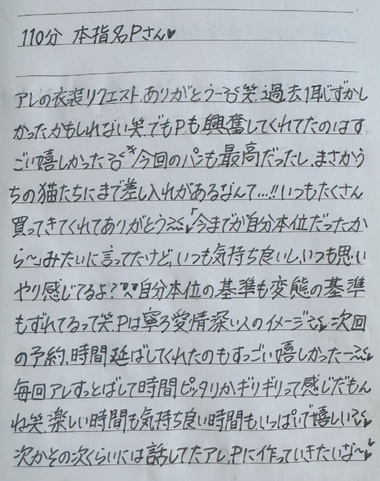 110分 本指名Pさん♥
アレの衣装リクエスト、ありがとう〜笑 過去1恥ずかし
かったかもしれない笑 でもPも興奮してくれてたのはす
ごい嬉しかった 今回のパンも最高だったし、まさかう
ちの猫たちにまで差し入れがあるなんて…!! いつもたくさん
買ってきてくれてありがとう 「今までが自分本位だったか
ら〜」みたいに言ってたけど、いつも気持ち良いし、いつも思い
やり感じてるよ? 自分本位の基準も変態の基準
もずれてるって笑 Pは寧ろ愛情深い人のイメージ 次回
の予約、時間延ばしてくれたのもすっごい嬉しかった〜
毎回アレすっとばして時間ピッタリかギリギリって感じだもん
ね笑 楽しい時間も気持ち良い時間もいっぱいで嬉しい
次かその次くらいには話してたアレ、Pに作っていきたいな〜♥